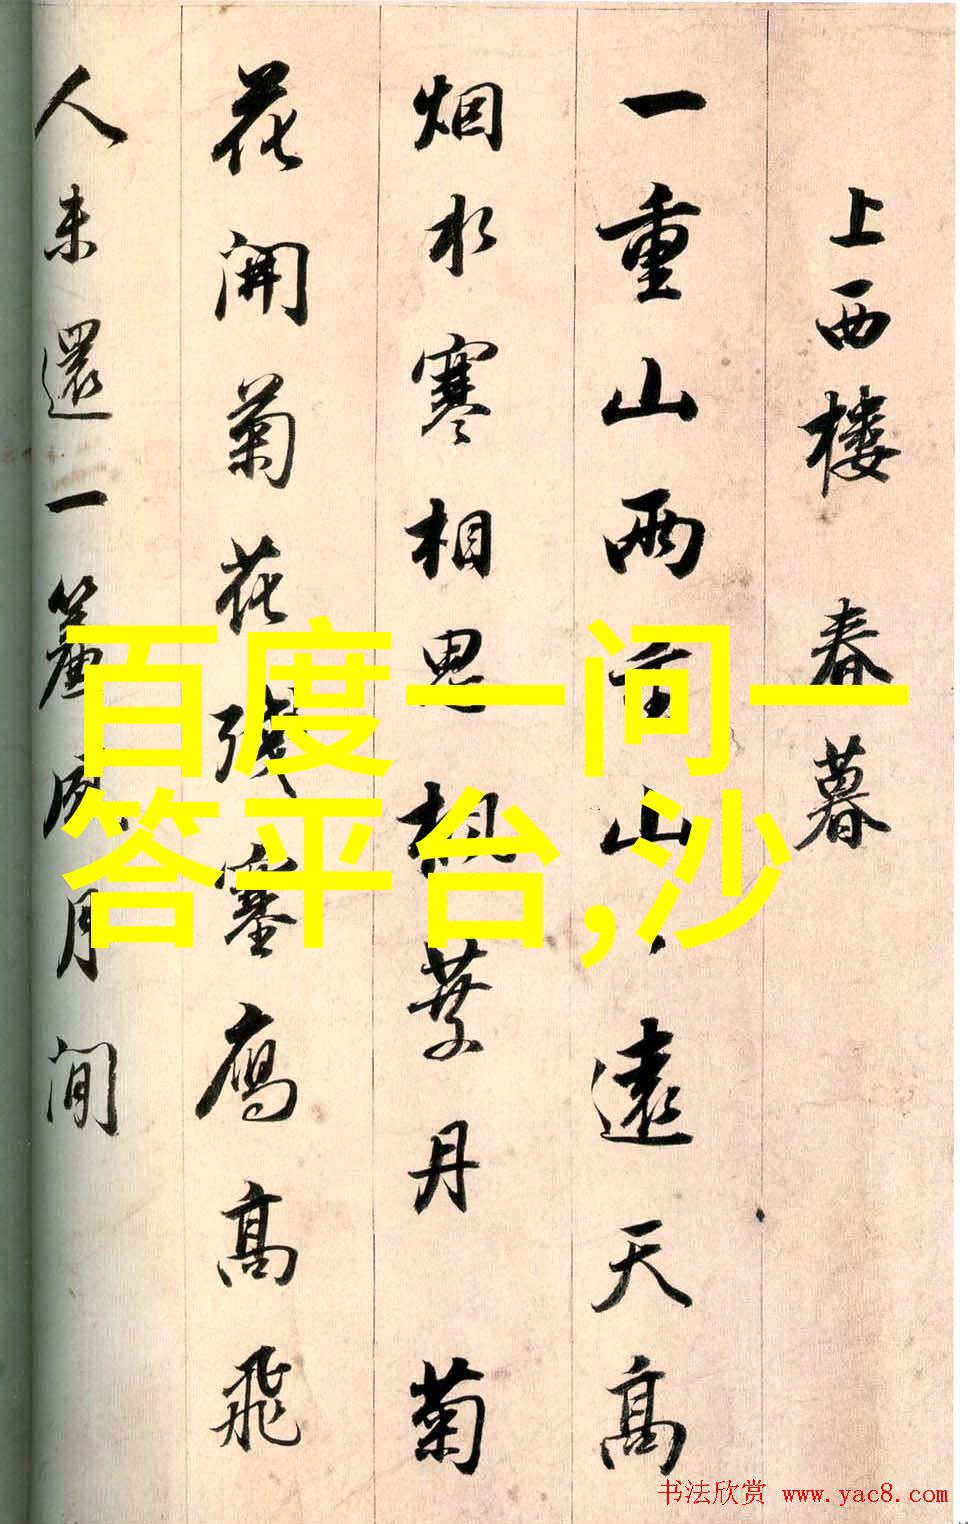 上西楼 春暮
一重山兩重山山遠天高
烟水寒相思楓葉丹 菊
花開菊花殘塞鴈高飛
人未還一簾風月閒
百度一问一
答平台,沙
书法欣赏 www.yac8.com